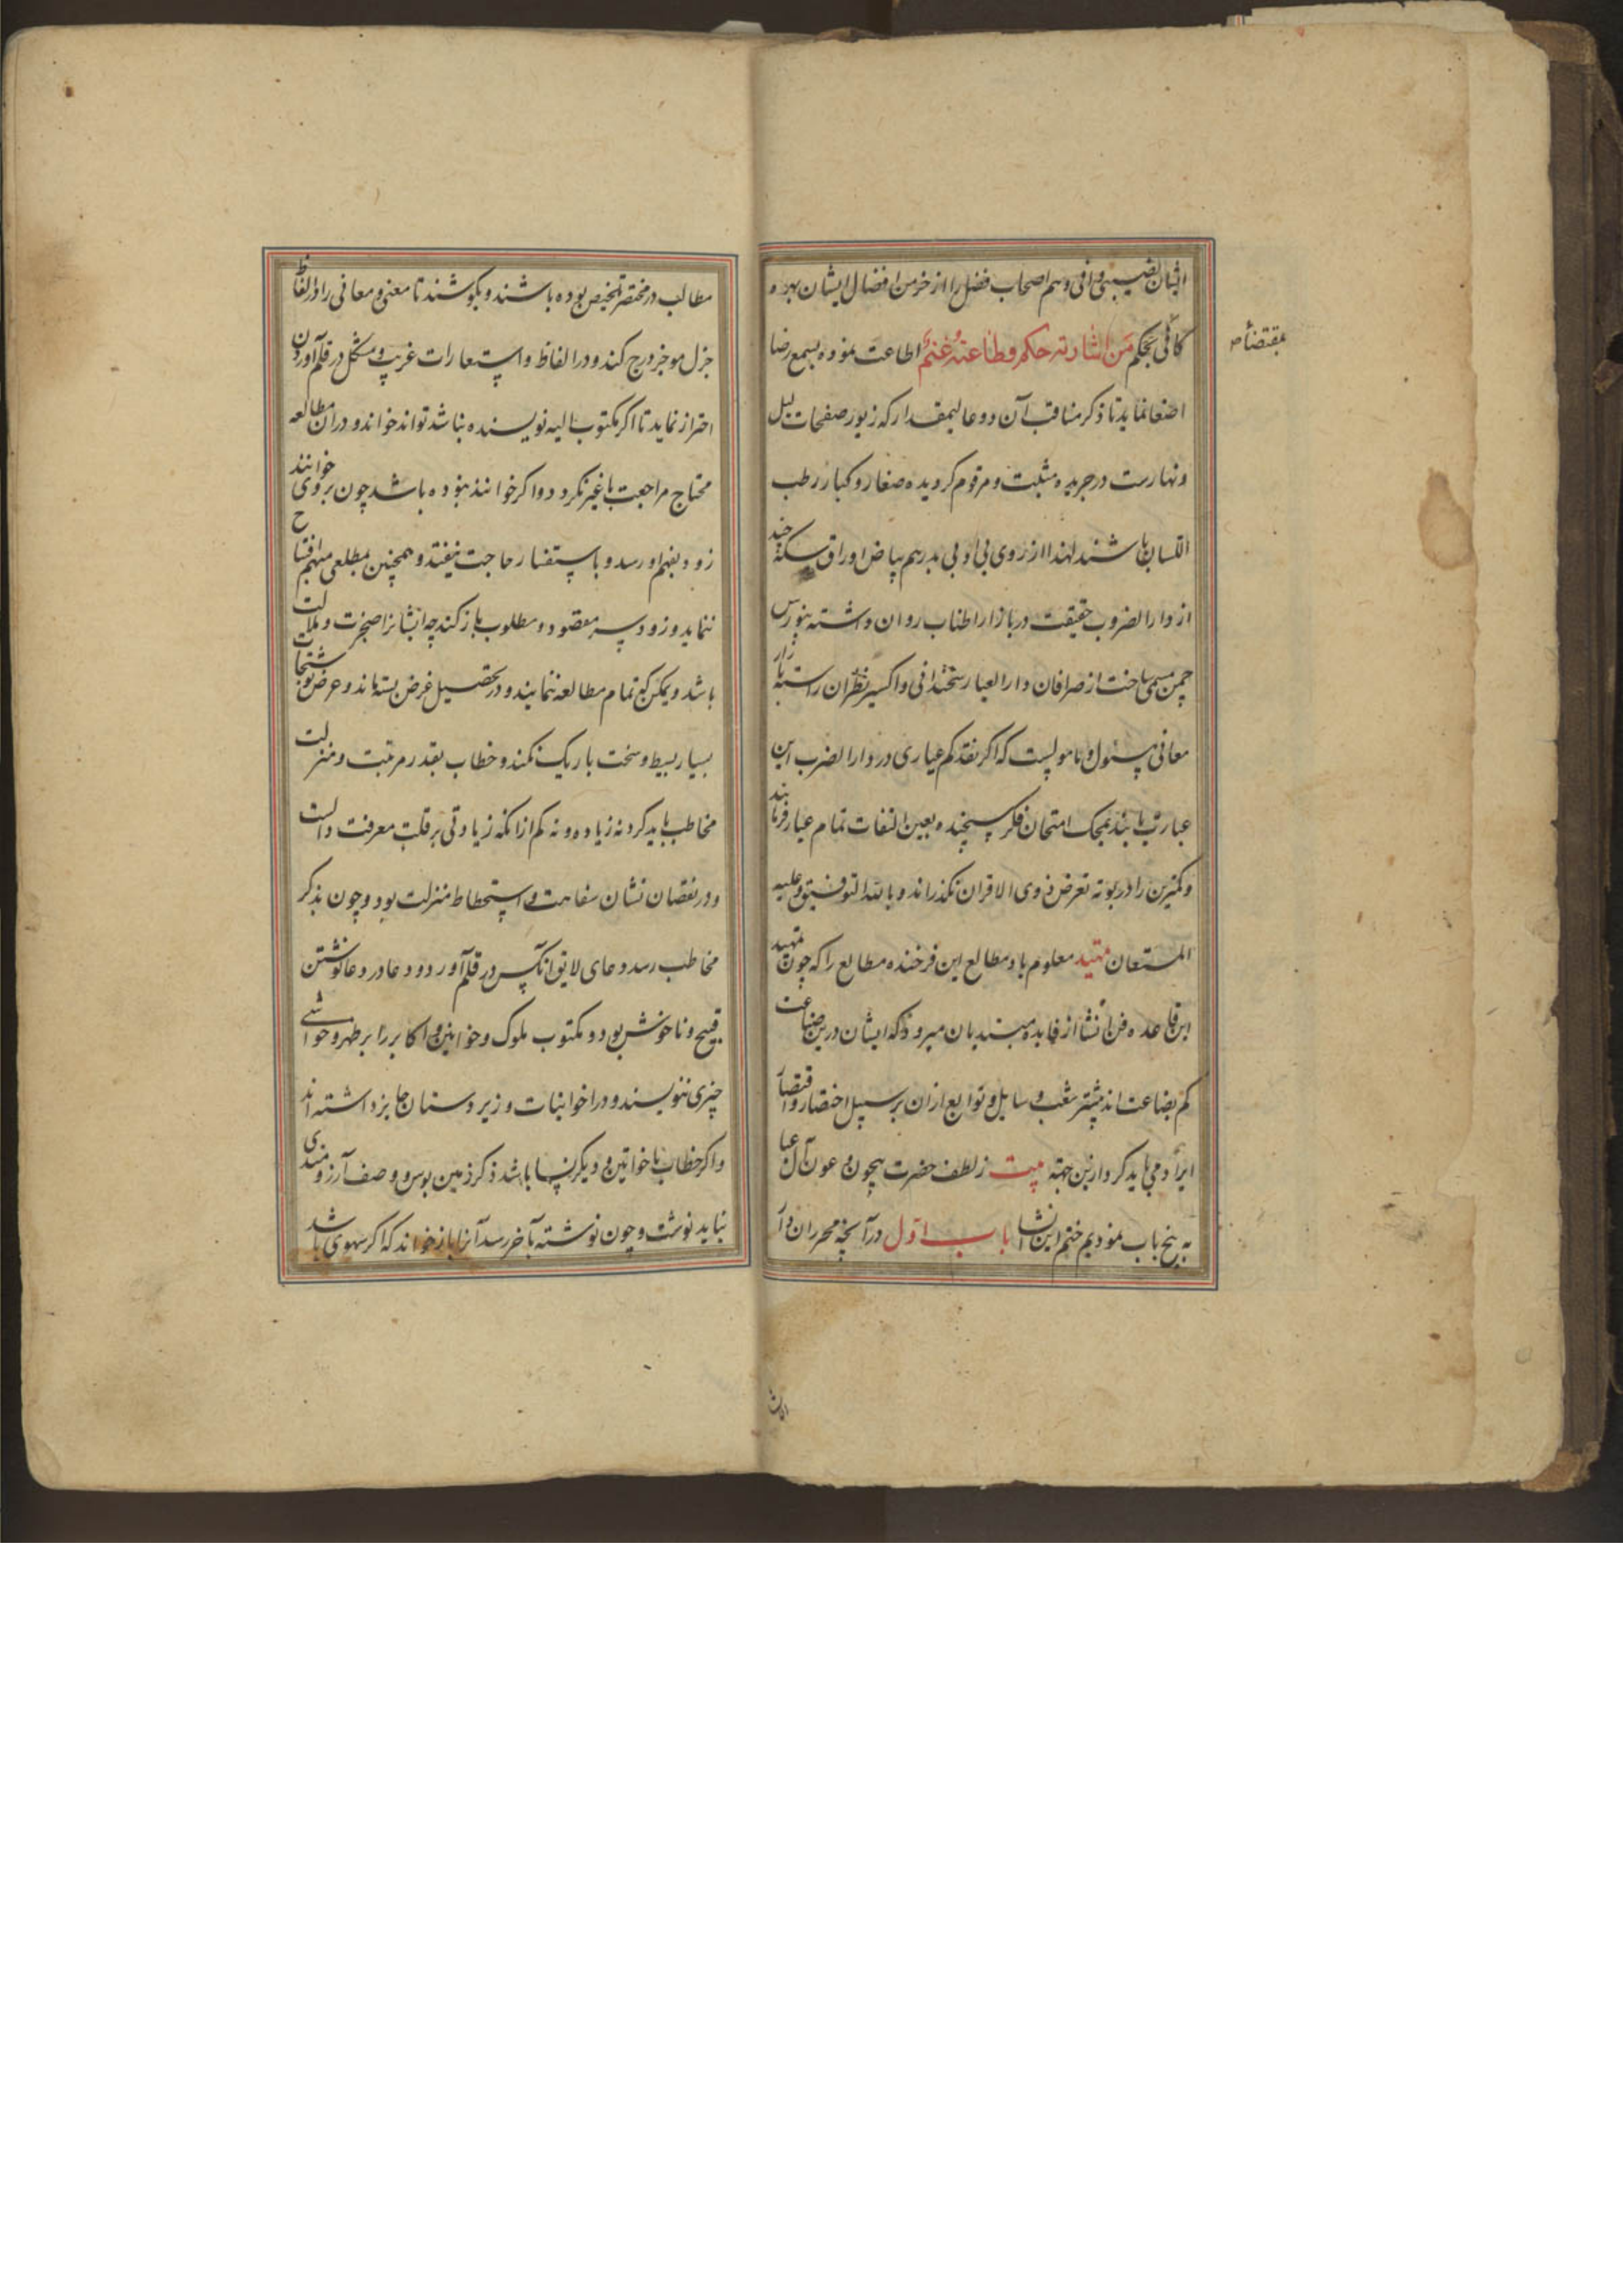 ایشان نصیبی وافی و هم اصحاب فضل را از خرمن افضال ایشان بهره
کافی بحکم مَن اشارته حکم وطاعته غنم اطاعت نموده بسمع رضا
بمقتضاء
اصغا نماید تا ذکر مناقب آن دو عالیمقدار که زیور صفحات لیل
ونهارست در جریده مثبت و مرقوم کردیده صغار و کبار رطب
اللسان باشند لهذا از روی بی اوبی بدرهم بیاض اوراق سکه چند
از دار الضروب حقیقت در بازار اطناب روان داشته بنورس
چمن مسمی ساخت از صرافان دار العیار سخندانی و اکسیر نظران راسته بازار
معانی مسئول و مامولست که اکر نقد کم عیاری در دار الضرب این
عبارت یابند بمحک امتحان فکر سنجیده بعین التفات تمام عیار فرمایند
و کمترین را در بوته تعرض ذوی الاقران نکذرانند و بالله التوفیق وعلیه
المستعان تمهید معلوم باد مطالع این فرخنده مطالع را که چون تمهید
این قاعده فن انشا از فایده مبتدیان میرود که ایشان درین صناعت
کم بضاعت اند بیشتر شعب و سایل و توابع ازان بر سبیل اختصار و اقتصار
ایراد می باید کرد ازین جهته بیت ز لطف حضرت بیچون و عون آل عبا
به پنج باب نمودیم ختم این انشا باب اول در آنچه محرران را
مطالب در مختصر تلخیص بوده باشند و بکوشند تا معنی و معانی را در الفاظ
جزل موجز درج کند و در الفاظ و استعارات غریب و مشکل در قلم آوردن
احتراز نماید تا اکر مکتوب الیه نویسنده نباشد تواند خواند و در ان مطالعه
محتاج مراجعت با غیر نکردد و اکر خواننده نبوده باشد چون بروی خوانند
زود بفهم او رسد و باستفسار حاجت نیفتد و همچنین بمطلعی مبهم افتتاح
ننماید و زود بسر مقصود و مطلوب باز کند چه ایشانرا ضجرت و ملالت
باشد و یمکن که تمام مطالعه ننمایند و در تحصیل غرض بسته ماند و عرض نوشتجات
بسیار بسیط و سخت باریک نکند و خطاب بقدر مرتبت و منزلت
مخاطب باید کرد نه زیاده و نه کم از انکه زیادتی بر قلت معرفت دالست
و در نقصان نشان سفاهت و استحطاط منزلت بود و چون بذکر
مخاطب رسد دعای لایق انکس در قلم آورد و دعا در دعا نوشتن
قبیح و ناخوش بود و مکتوب ملوک و خواتین و اکابر را بر ظهر و حواشی
چیزی ننویسند و در اخوانیات و زیر دستان جایز داشته اند
و اکر خطاب با خواتین و دیکر نسا باشد ذکر زمین بوس و وصف آرزومندی
نباید نوشت و چون نوشته بآخر رسد آنرا باز خواند که اکر سهوی باشد